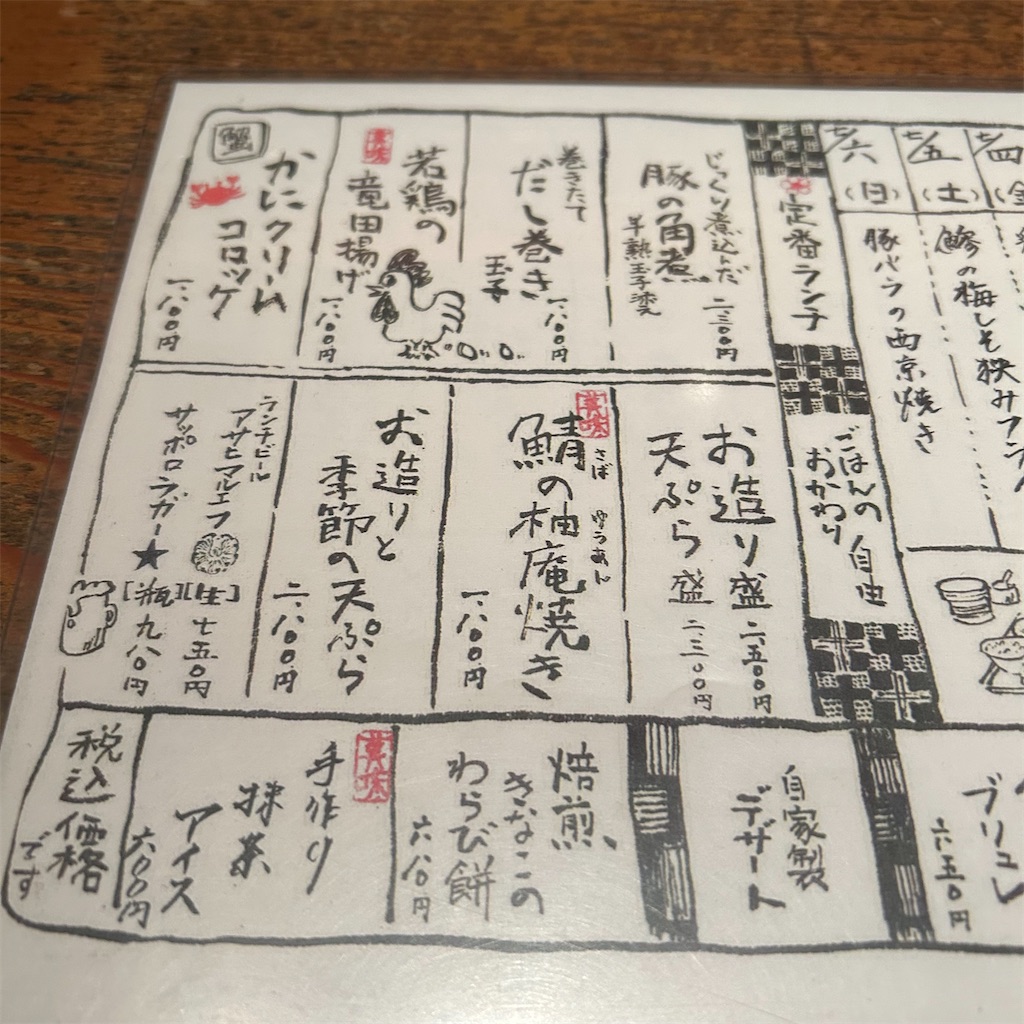 七/四
(金
七/五
(土)
鯵の梅しそ挟みフライ
七/六
(日)
豚バラの西京焼き
定番ランチ
ごはんの
おかわり
自由
じっくり煮込んだ
豚の角煮
半熟玉子添え
二三三〇円
巻きたて
だし巻き
玉子
一八〇〇円
美味
若鶏の
竜田揚げ
一八〇〇円
蟹
かにクリーム
コロッケ
一八〇〇円
お造り盛 二五〇〇円
天ぷら盛 二三〇〇円
美味
さば ゆうあん
鯖の柚庵焼き
一八〇〇円
お造りと
季節の天ぷら
二八〇〇円
ランチビール
アサヒマルエフ [生] 七五〇円
サッポロラガー★ [瓶] 九八〇円
ブリュレ
六五〇円
自家製
デザート
焙煎
きなこの
わらび餅
六八〇円
美味
手作り
抹茶
アイス
六〇〇円
税込価格
です